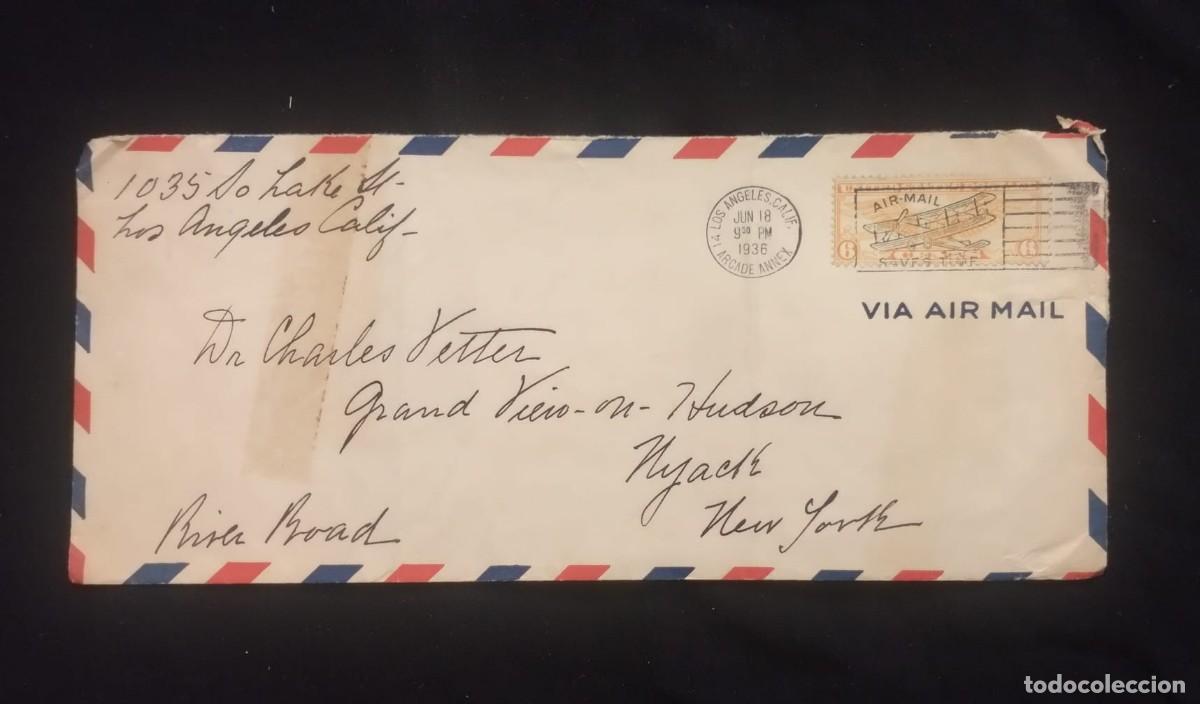 1035 So Lake St-
Los Angeles Calif-
LOS ANGELES, CALIF.
JUN 18
9 30 PM
1936
1 ARCADE ANNEX
AIR-MAIL
SAVES TIME
6 6
VIA AIR MAIL
Dr Charles Vetter
Grand View-on-Hudson
Nyack
New York
River Road
todocoleccion